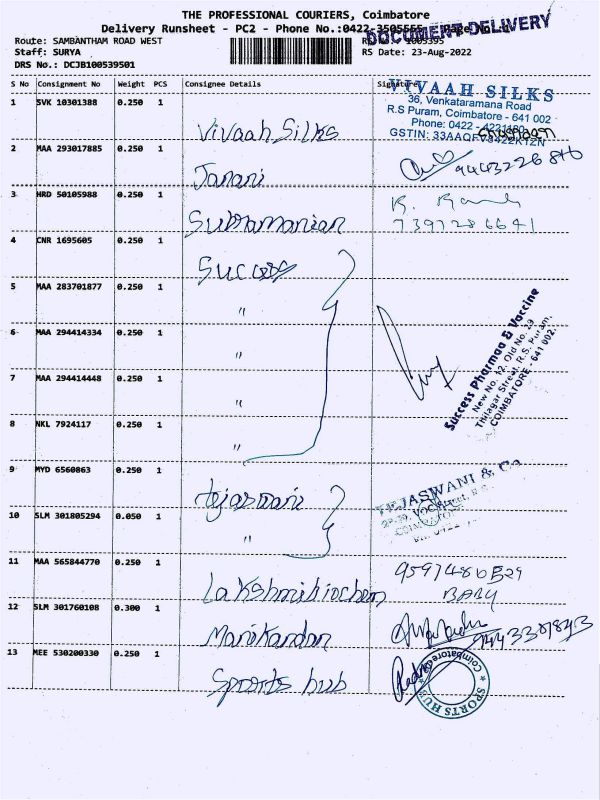 THE PROFESSIONAL COURIERS, Coimbatore
Delivery Runsheet - PC2 - Phone No.:0422-3505555
DOCUMENT DELIVERY
Route: SAMBANTHAM ROAD WEST
Staff: SURYA
RS Date: 23-Aug-2022
DRS No.: DCJB100539501
S No Consignment No Weight PCS Consignee Details Signature
1 SVK 10301388 0.250 1 Vivaah Silks
VIVAAH SILKS
36, Venkataramana Road
R.S Puram, Coimbatore - 641 002
Phone: 0422 - 4221160
GSTIN: 33AAQFV8422K1ZN
2 MAA 293017885 0.250 1 Janani
3 HRD 50105988 0.250 1 Subramanian
7397286641
4 CNR 1695605 0.250 1 Success
5 MAA 283701877 0.250 1 "
6 MAA 294414334 0.250 1 "
7 MAA 294414448 0.250 1 "
8 NKL 7924117 0.250 1 "
Success Pharmaa & Vaccine
New No. 12, Old No. 29
Thilagar Street, R.S. Puram,
COIMBATORE - 641 002.
9 MYD 6560863 0.250 1 tejaswani
TEJASWANI & Co
10 SLM 301805294 0.050 1 "
11 MAA 565844770 0.250 1 Lakshmi biochem
BABY
12 SLM 301760108 0.300 1 Manikandan
13 MEE 530200330 0.250 1 Sports hub
SPORTS HUB
Coimbatore